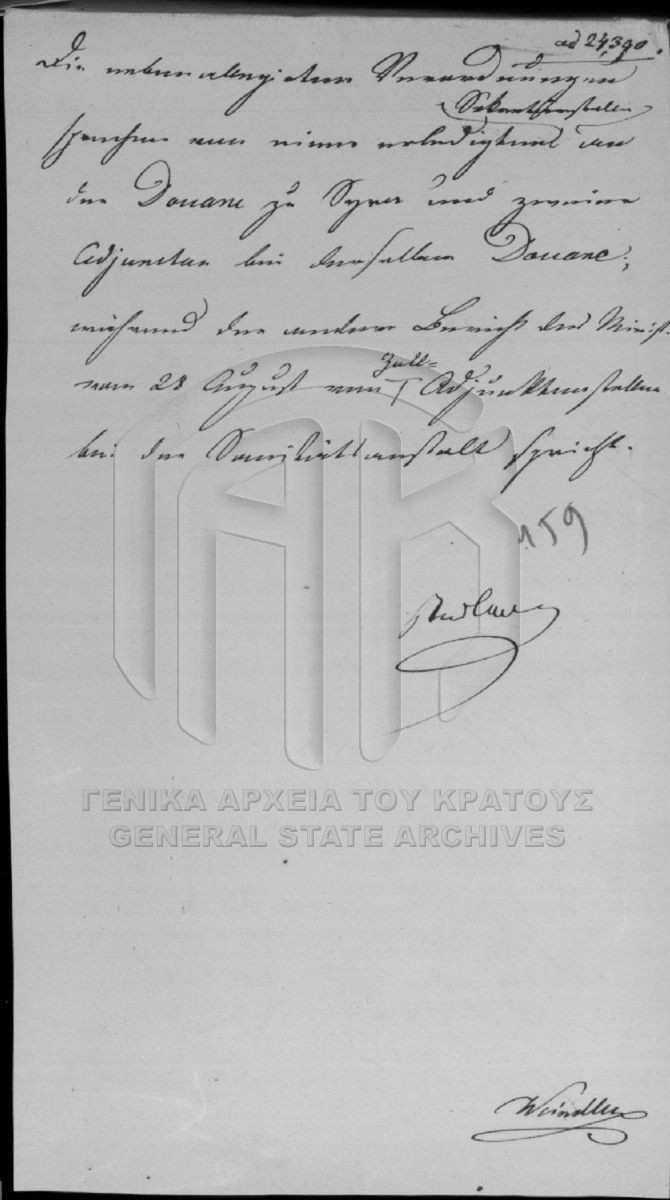 ad 24,390.
Die neben allegirten Verordnungen
Sekretärsstelle
sprechen von einer erledigten an
der Douane zu Syra und zweier
Adjuncten bei derselben Douane;
während der andere Bericht des Minist.
vom 28 August von Zoll-Adjunktenstellen
bei der Sanitätsanstalt spricht.
159
ΓΕΝΙΚΑ ΑΡΧΕΙΑ ΤΟΥ ΚΡΑΤΟΥΣ
GENERAL STATE ARCHIVES